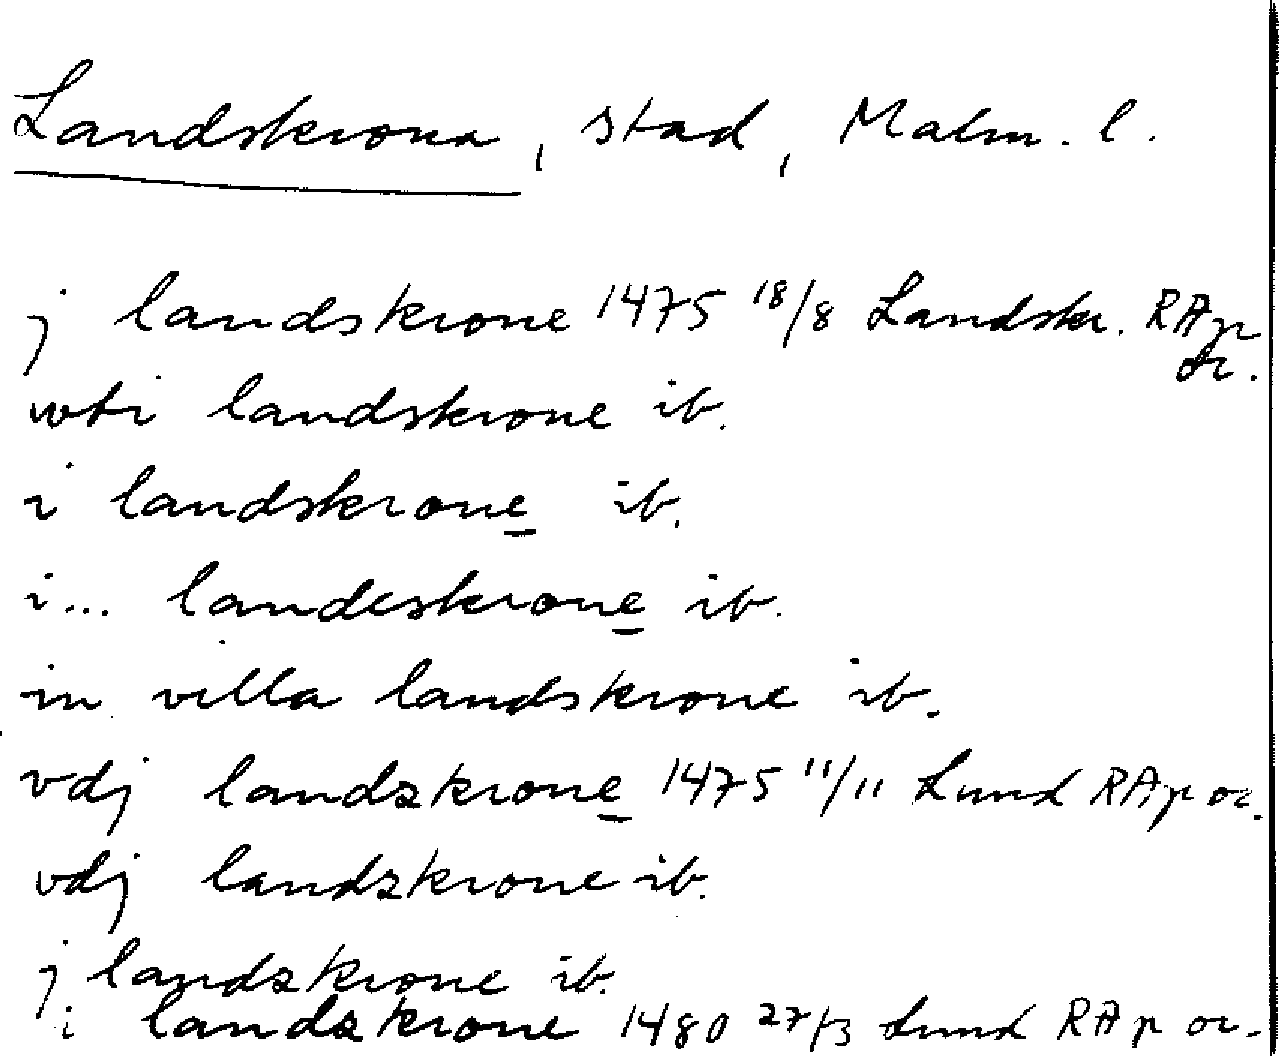 Landskrona, stad, Malm. l.
j landskrone 1475 18/8 Landskr. RAp
or.
wti landskrone ib.
i landskrone ib.
i... landeskrone ib.
in villa landskrone ib.
vdj landzkrone 1475 11/11 Lund RAp or.
vdj landzkrone ib.
j landzkrone ib.
i landzkrone 1480 27/3 Lund RAp or.